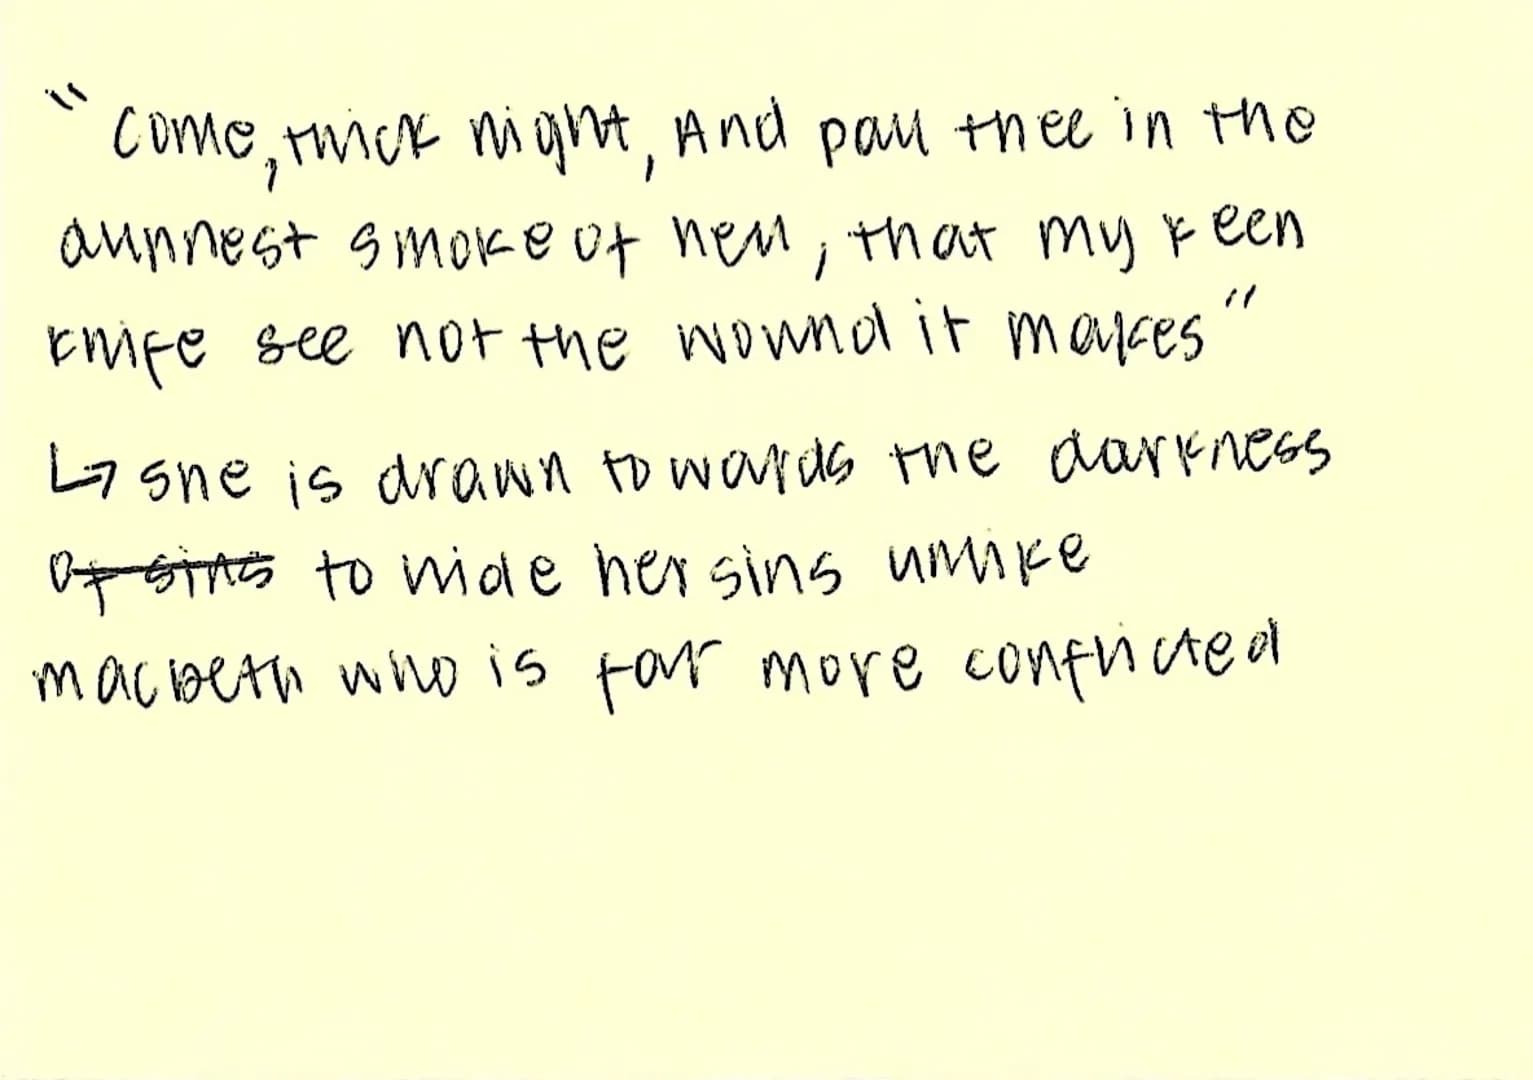 "Come, thick night, And pall thee in the
dunnest smoke of hell, that my keen
knife see not the wound it makes"
↳ she is drawn towards the darkness
of sins to hide her sins unlike
macbeth who is far more conflicted